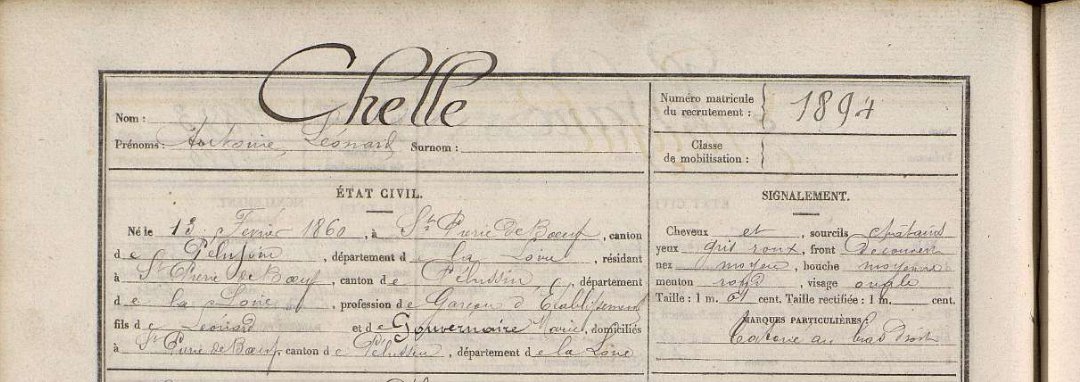 Nom : Chelle
Prénoms : Antoine Léonard Surnom :
Numéro matricule
du recrutement : 1894
Classe
de mobilisation :
ÉTAT CIVIL.
Né le 13 Février 1860, à St Pierre de Bœuf, canton
de Pélussin, département de la Loire, résidant
à St Pierre de Bœuf, canton de Pélussin, département
de la Loire, profession de Garçon d'Etablissement
fils de Léonard et de Gouvernaire Marie, domiciliés
à St Pierre de Bœuf, canton de Pélussin, département de la Loire
SIGNALEMENT.
Cheveux et sourcils chatains
yeux gris roux, front Découvert
nez moyen, bouche moyenne
menton rond, visage ovale
Taille : 1 m. cent. Taille rectifiée : 1 m. cent.
MARQUES PARTICULIÈRES :
au bras droit